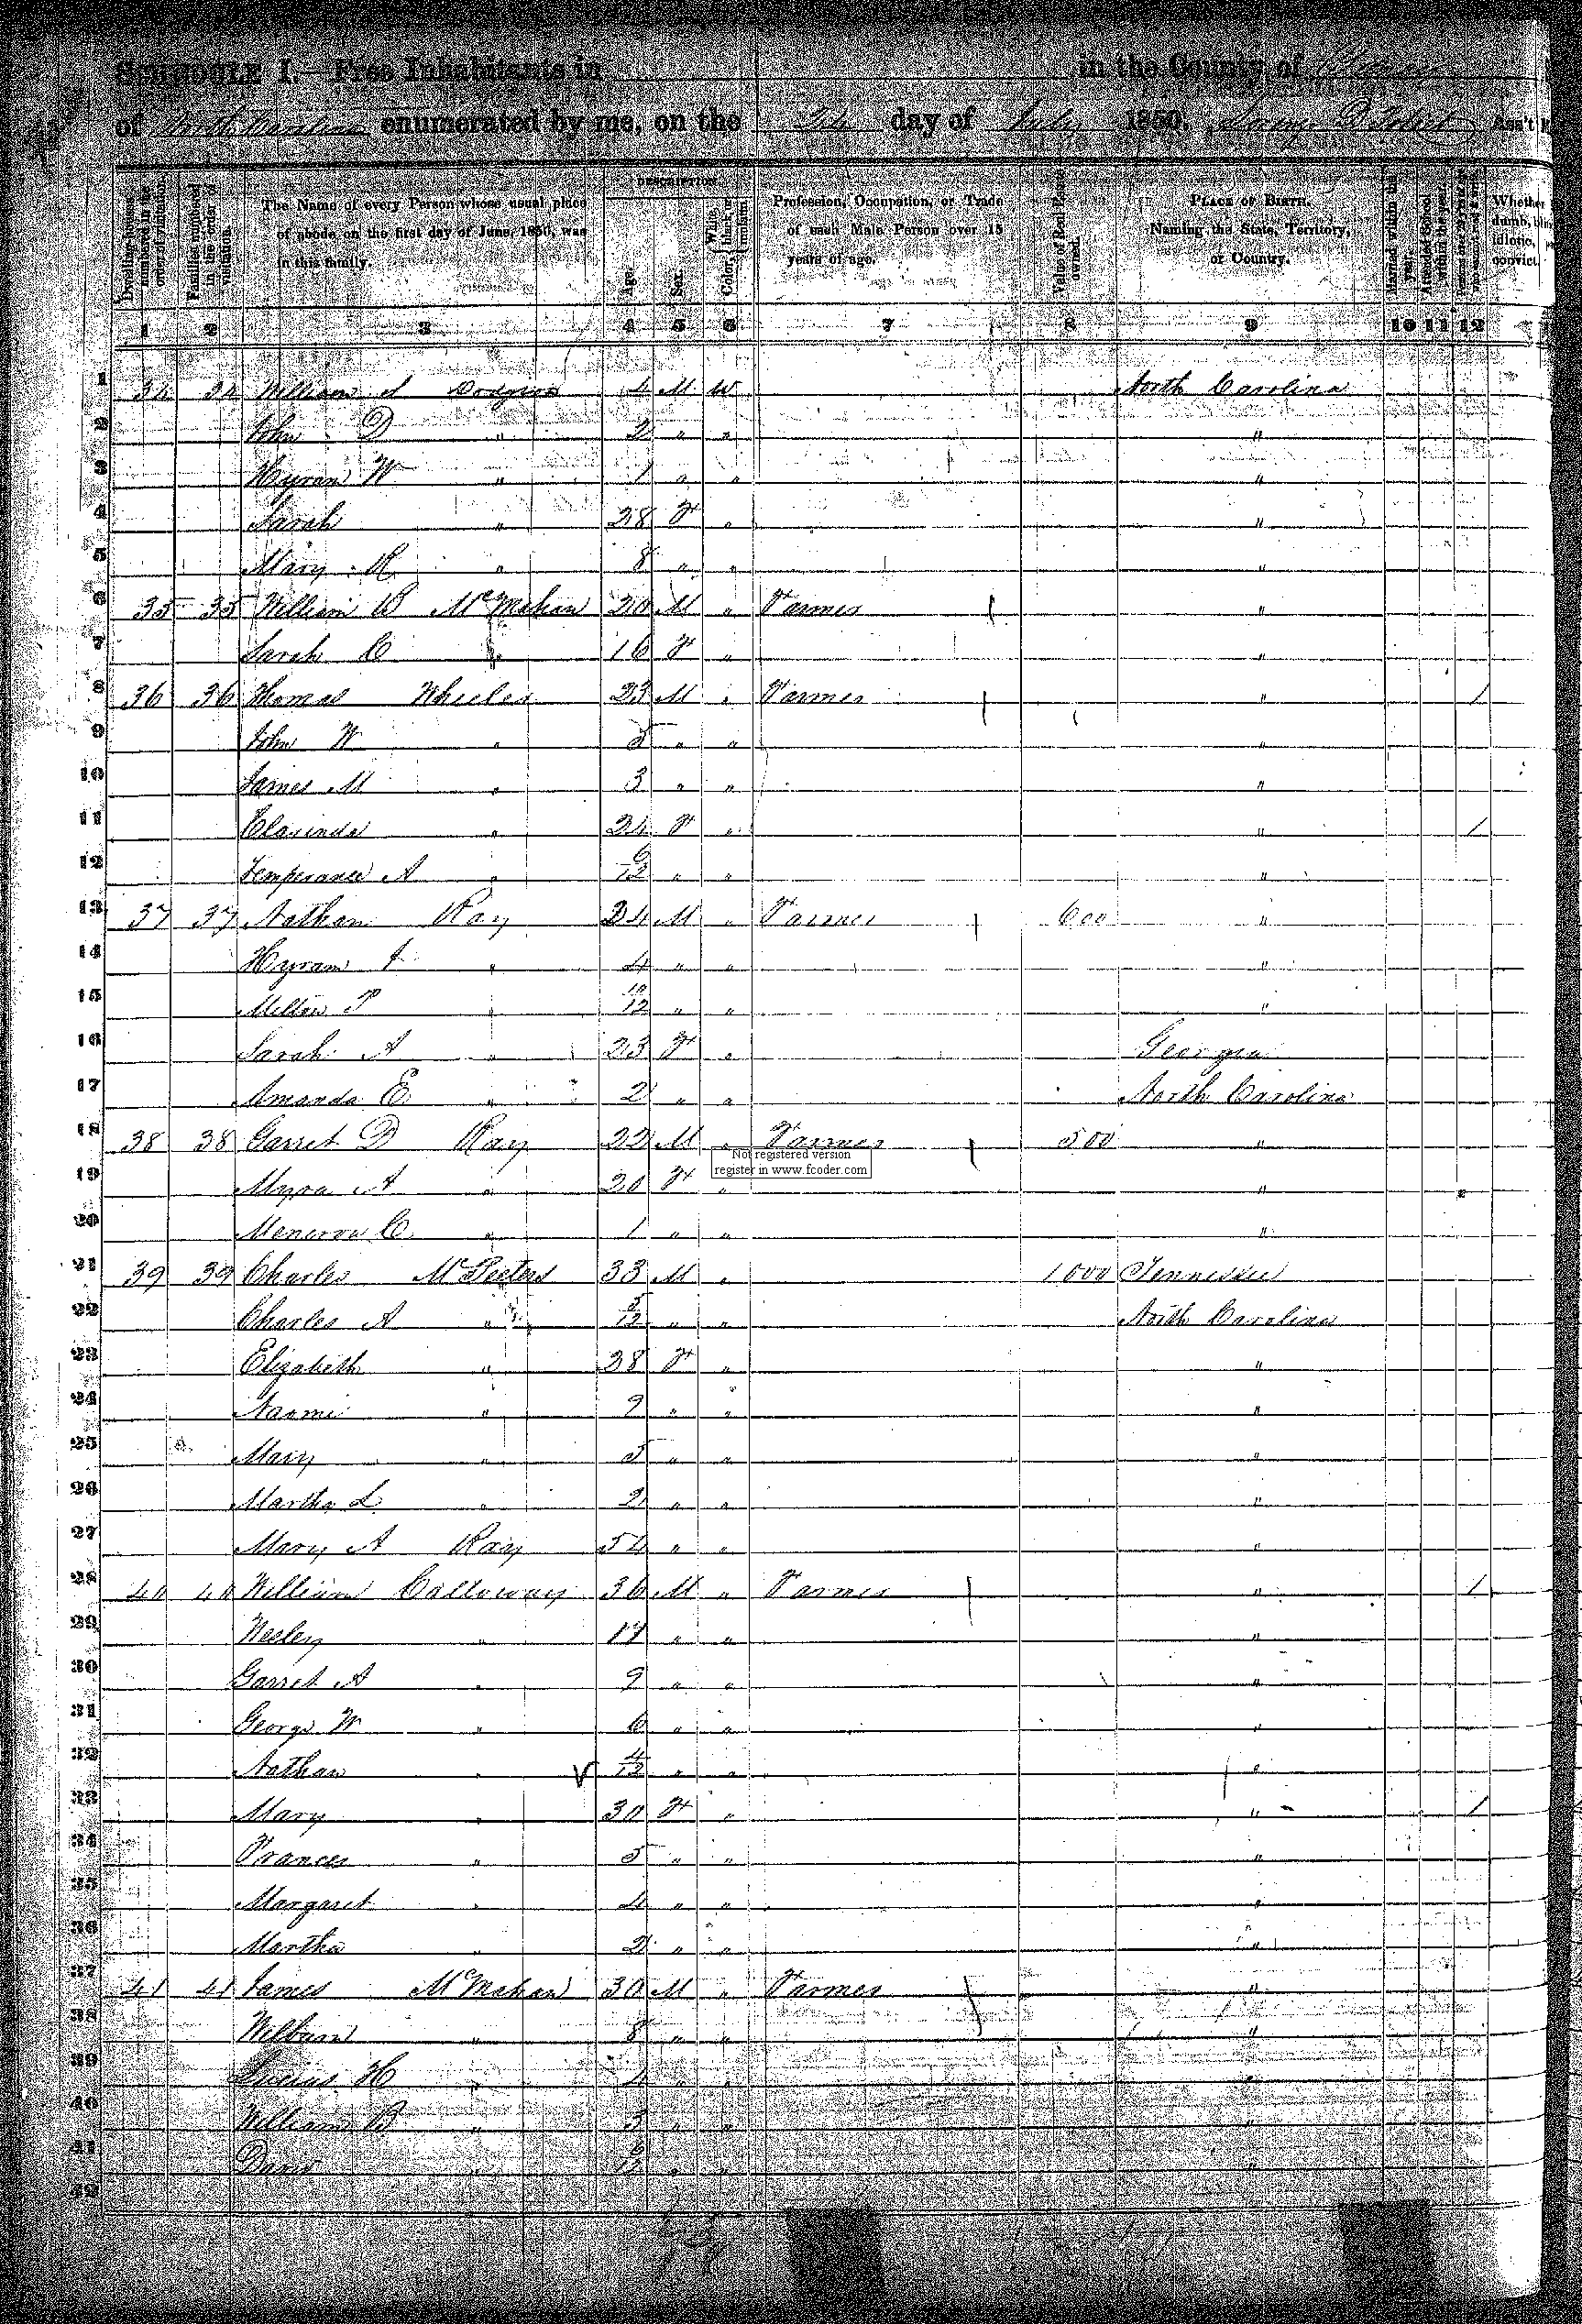 SCHEDULE I.—Free Inhabitants in in the County of
of North Carolina enumerated by me, on the day of July 1850. Ass't
Dwelling-houses numbered in the order of visitation.
Families numbered in the order of visitation.
The Name of every Person whose usual place of abode on the first day of June, 1850, was in this family.
DESCRIPTION.
Age.
Sex.
Color, White, black, or mulatto.
Profession, Occupation, or Trade of each Male Person over 15 years of age.
Value of Real Estate owned.
PLACE OF BIRTH. Naming the State, Territory, or Country.
Married within the year.
Attended School within the year.
Whether dumb, idiotic, convict.
1 2 3 4 5 6 7 8 9 10 11 12
1 34 34 William 4 M W North Carolina
2 John D " 2 " " "
3 Hyram W " 1 " " "
4 Sarah " 28 F " "
5 Mary R " 8 " " "
6 35 35 William B McMahan 20 M " Farmer "
7 Sarah C " 16 F " "
8 36 36 Thomas Wheeler 23 M " Farmer " /
9 John W " 5 " " "
10 James M " 3 " " "
11 Clarinda " 24 F " " /
12 Temperance A " 6/12 " " "
13 37 37 Nathan Ray 24 M " Farmer 600 "
14 Hyram " 4 " " "
15 Milton P " 10/12 " " "
16 Sarah A " 23 F " Georgia
17 Amanda E " 2 " " North Carolina
18 38 38 Garret D Ray 22 M " Farmer 500 "
Not registered version
register in www.fcoder.com
19 Myra A " 20 F " "
20 C " 1 " " "
21 39 39 Charles McPeeters 33 M " 1000 Tennessee
22 Charles A " 5/12 " " North Carolina
23 Elizabeth " 38 F " "
24 Naomi " 9 " " "
25 Mary " 5 " " "
26 Martha L " 2 " " "
27 Mary A Ray 54 " " "
28 40 40 William Calloway 36 M " Farmer " /
29 Wesley " 17 " " "
30 Garret A " 9 " " "
31 George W " 6 " " "
32 Nathan " 4/12 " " "
33 Mary " 30 F " " /
34 Frances " 5 " " "
35 Margaret " 4 " " "
36 Martha " 2 " " "
37 41 41 James McMahan 30 M " Farmer "
38 Wilburn " 8 " " "
39 H " 4 " " "
40 William B " 3 " " "
41 David " " " "
42